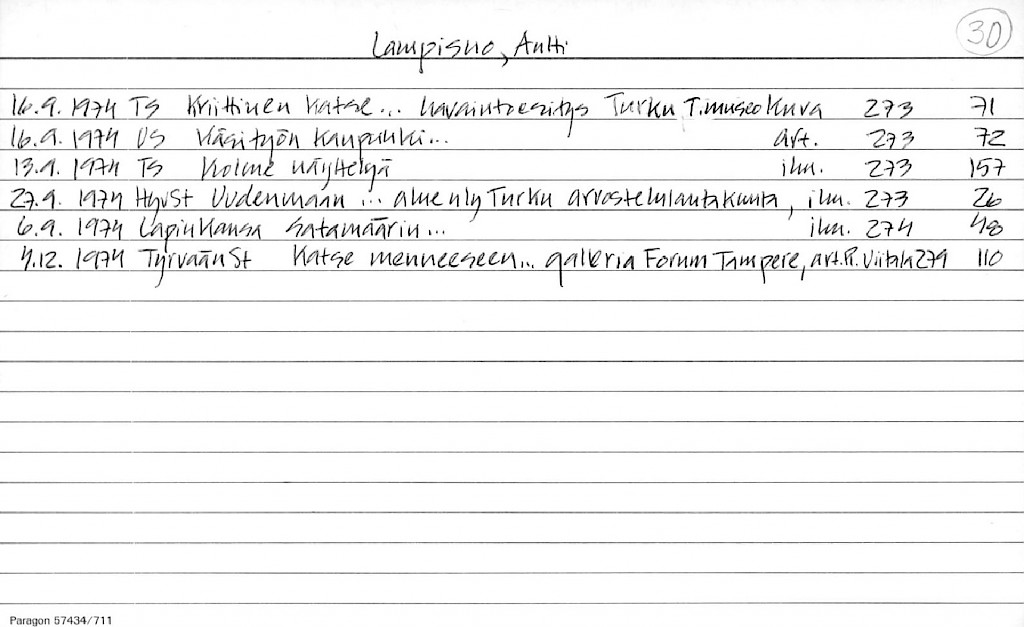 30
Lampisuo, Antti
16.9. 1974 TS Kriittinen katse... havaintoesitys Turku T.museo kuva 273 71
16.9. 1974 US Käsityön kaupunki... art. 273 72
13.9. 1974 TS Kolme näyttelyä ilm. 273 157
27.9. 1974 HyvSt Uudenmaan ... aluenly Turku arvostelulautakunta, ilm. 273 26
6.9. 1974 LapinKansa Satamäärin... ilm. 274 48
4.12. 1974 TyrväänSt Katse menneeseen... galleria Forum Tampere, art. R. Viitala 279 110
Paragon 57434/711